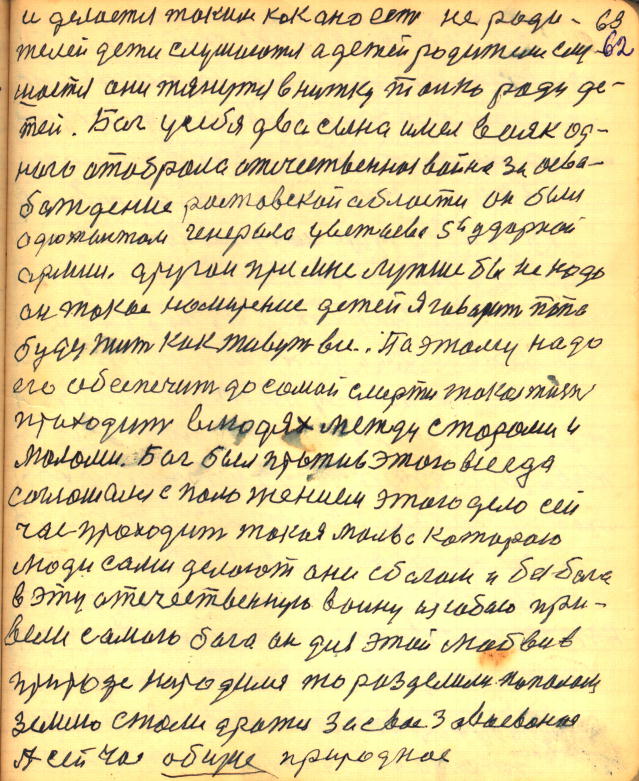 и делается таким как оно есть не роди- 63
телей дети слушаются а детей родители слу- 62
шаются они тянутся в нитку только ради де-
тей. Бог у себя два сына имел в одно
ного отобрала отечественная война за осва-
бождение ростовской области он был
адютантом генерала цветаева 5й ударной
армии. другой при мне лучше бы не надо
он такое намирение детей я говорит папа
буду жить как живут все. Поэтому надо
его обеспечит до самой смерти такая жизнь
проходит в людях между старыми и
малыми. Бог был против этого всегда
соглошался с положением этого дело сей
час проходит такая мысль которою
люди сами делают они с богом и без бога
в эту отечественную войну из собою при-
вели самого бога он для этой любви в
природе народился то разделили пополам
землю стали драться за свое завоевание
А сейчас общее природное